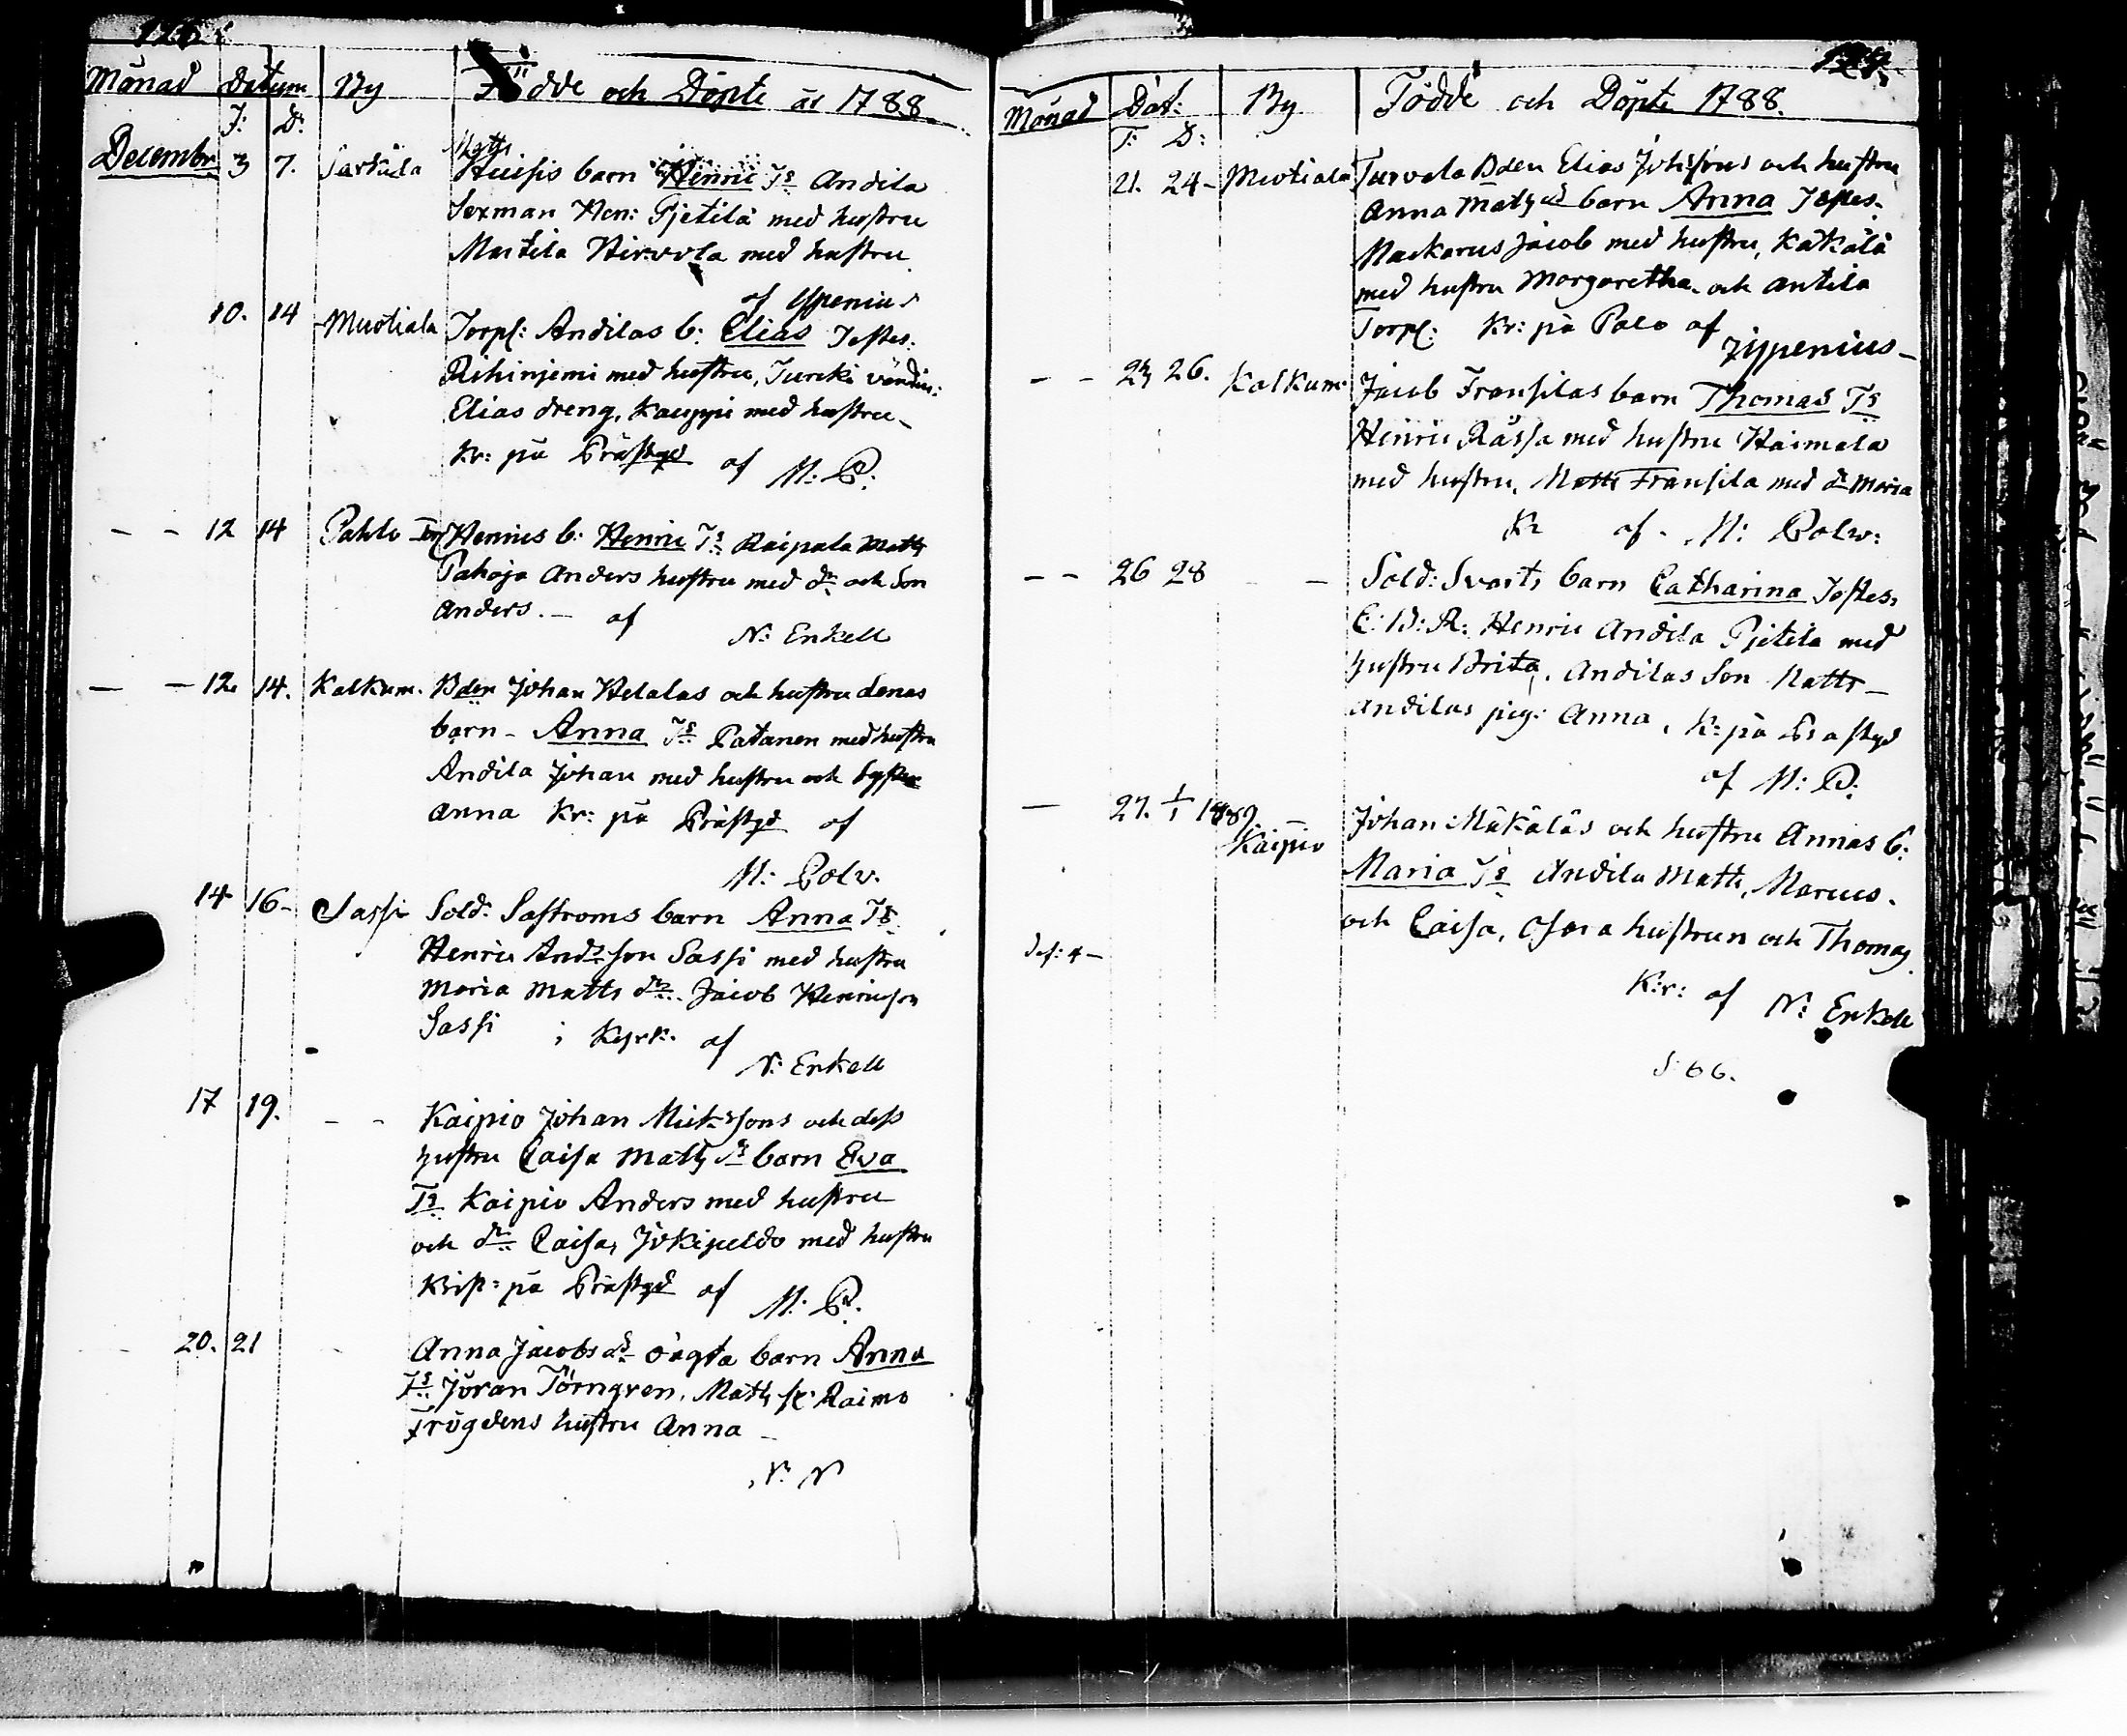 Månad Datum By Födde och Döpte år 1788.
F: D:
Decembr 3 7. Sarkila Matts
Huisis barn Henric Ts Andila
Sexman Hen: Pjetilä med hustru
Martila Hirvola med hustru
af Ypenius
10. 14 Muotiala Torp: Andilas b: Elias Testes:
Rihinjemi med hustru, Turcki
Elias dreng, Kauppi med hustru
Kr: på Prästgd af M: P:
- - 12 14 Pahlo Henrics b: Henric Ts Raipala Matts
Pahoja Anders hustru med dr och Son
Anders. - af
N: Enkell
- - 12. 14. Kalkum. Bden Johan Helalas och hustru Lenas
barn - Anna Ts Patanen med hustru
Andila Johan med hustru och Syster
Anna Kr: på Prästgd af
M: Polv.
14 16- Sassi Sold: Sastroms barn Anna Ts
Henric Andsson Sassi med hustru
Maria Matts dr. Jacob Henricson
Sassi i Kyrk: af
N: Enkell
17 19. - - Kaipio Johan Mickssons och dess
hustru Caisa Matts dr barn Eva
Ts Kaipio Anders med hustru
och dr Caisa, Jokipeldo med hustru
Krist: på Prästgd af M: P.
20. 21 - Anna Jacobs dr oägta barn Anna
Ts Jöran Törngren, Matts Raimo
Trögdens hustru Anna -
N: N
129.
Månad Dat: By Födde och Döpte 1788.
F: D:
21. 24- Muotiala Turvola Bden Elias Johssons och hustru
Anna Mats dr barn Anna Testes.
Mackarus Jacob med hustru, Käkälä
med hustru Margaretha och Antila
Torp: Kr: på Palo af
Zypenius -
- - 24 26. Kalkum Jacob Fransilas barn Thomas Ts
Henric Rässa med hustru Haimala
med hustru, Matts Fransila med dr Maria
Kr af M: Polv:
- - 26 28 - - Sold: Svarts barn Catharina Testes,
C: W: R: Henric Andila Pjetila med
hustru Brita, Andilas Son Matts -
Andilas pig: Anna, K: på Prästgd
af M: P:
- 27. 1/1 1789. Kaipio Johan Mäkäläs och hustru Annas b:
Maria Ts Andila Matts, Marcus.
och Caisa, hustrun och Thomas
Def: 4 -
Kr: af N: Enkell
S: 66.